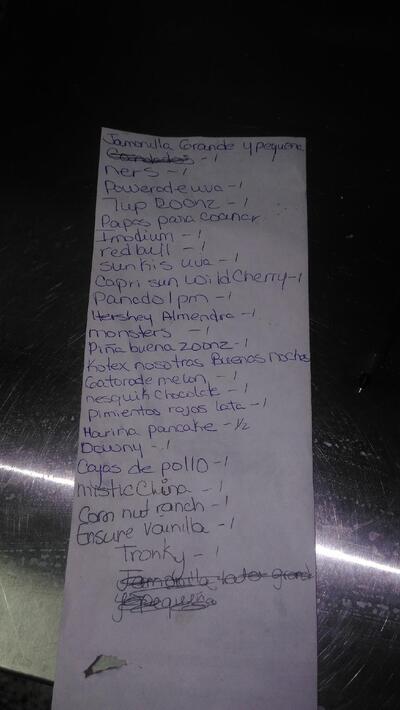 Jamonilla Grande y pequeña
Candados - 1
ners - 1
Powerade uva - 1
7up 200nz - 1
Papas para cocinar
Imodium - 1
redbull - 1
sunkis uva - 1
Capri sun Wild Cherry - 1
Panadol pm - 1
Hershey Almendra - 1
monsters - 1
Piña buena 200nz - 1
Kotex nosotras Buenas noches
Gatorade melon - 1
nesquik chocolate - 1
pimientos rojos lata - 1
Harina pancake - 1/2
Downy - 1
Cajas de pollo - 1
mistic China - 1
Corn nut ranch - 1
Ensure Vainilla - 1
Tronky - 1
Jamonilla lata grand
y pequeña